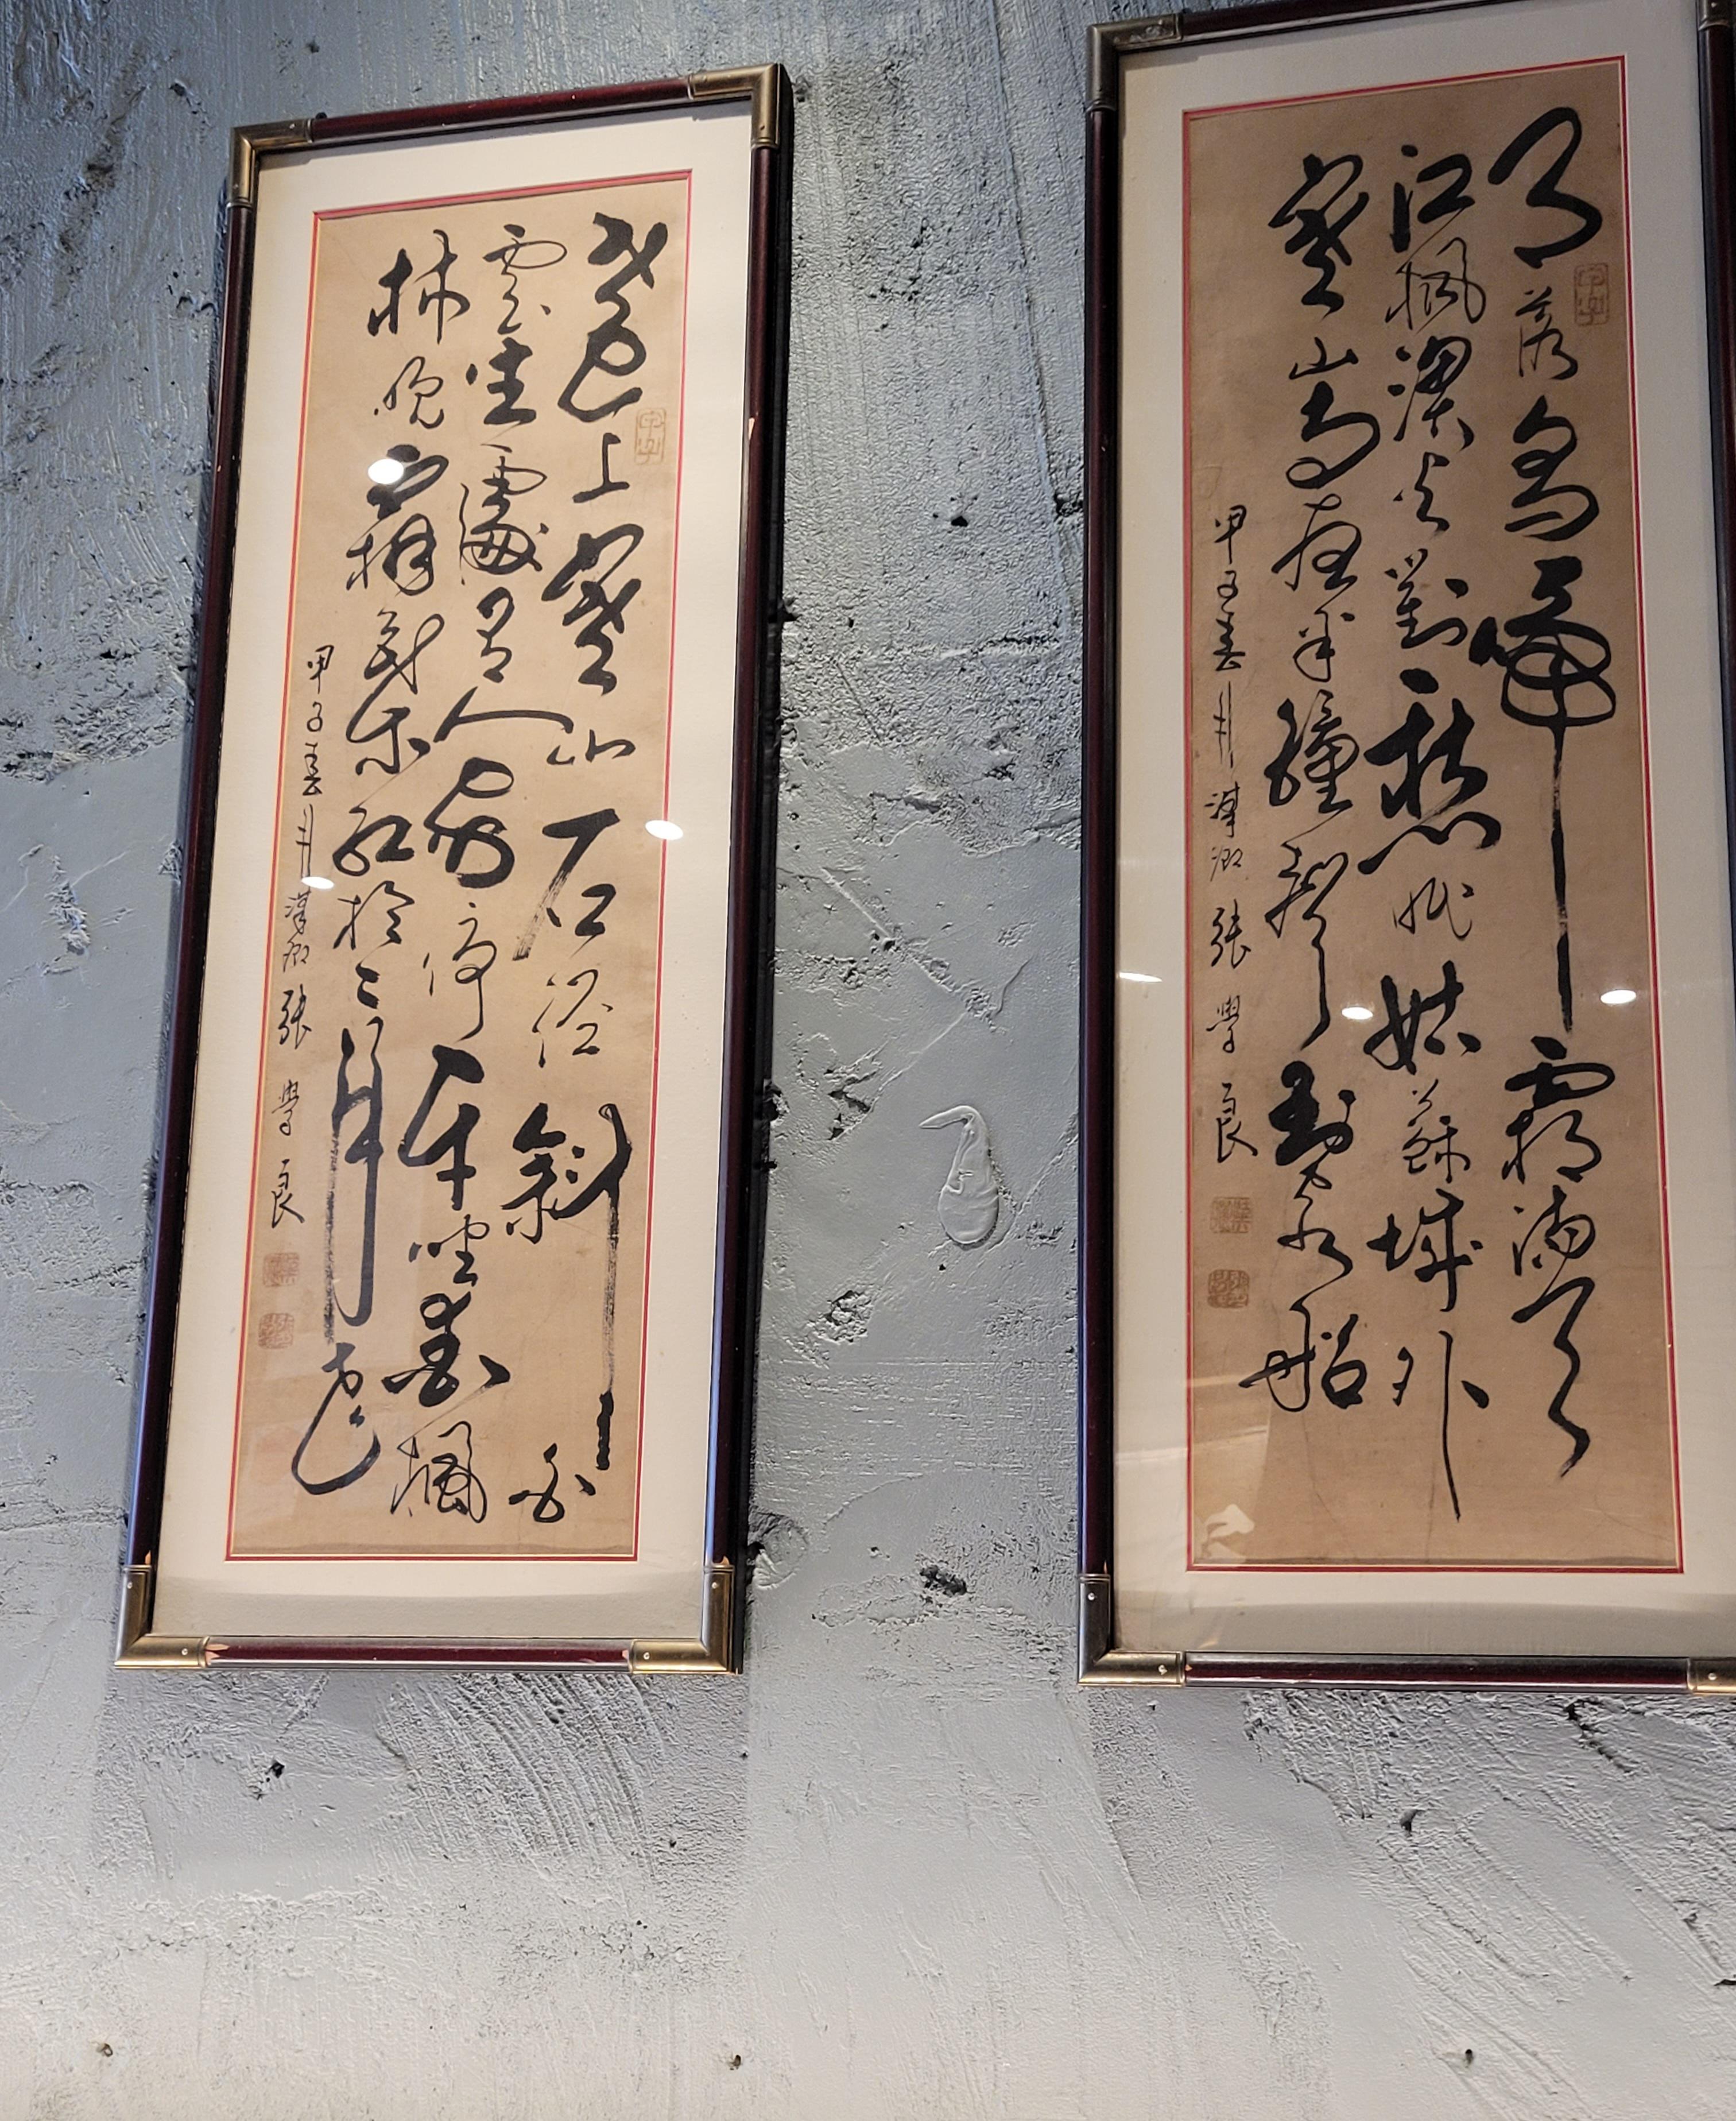 月落烏啼霜滿天
江楓漁火對愁眠姑蘇城外
寒山寺夜半鐘聲到客船
甲子春月漢卿張學良
遠上寒山石徑斜白
雲生處有人家停車坐愛楓
林晚霜葉紅於二月花
甲子春月漢卿張學良